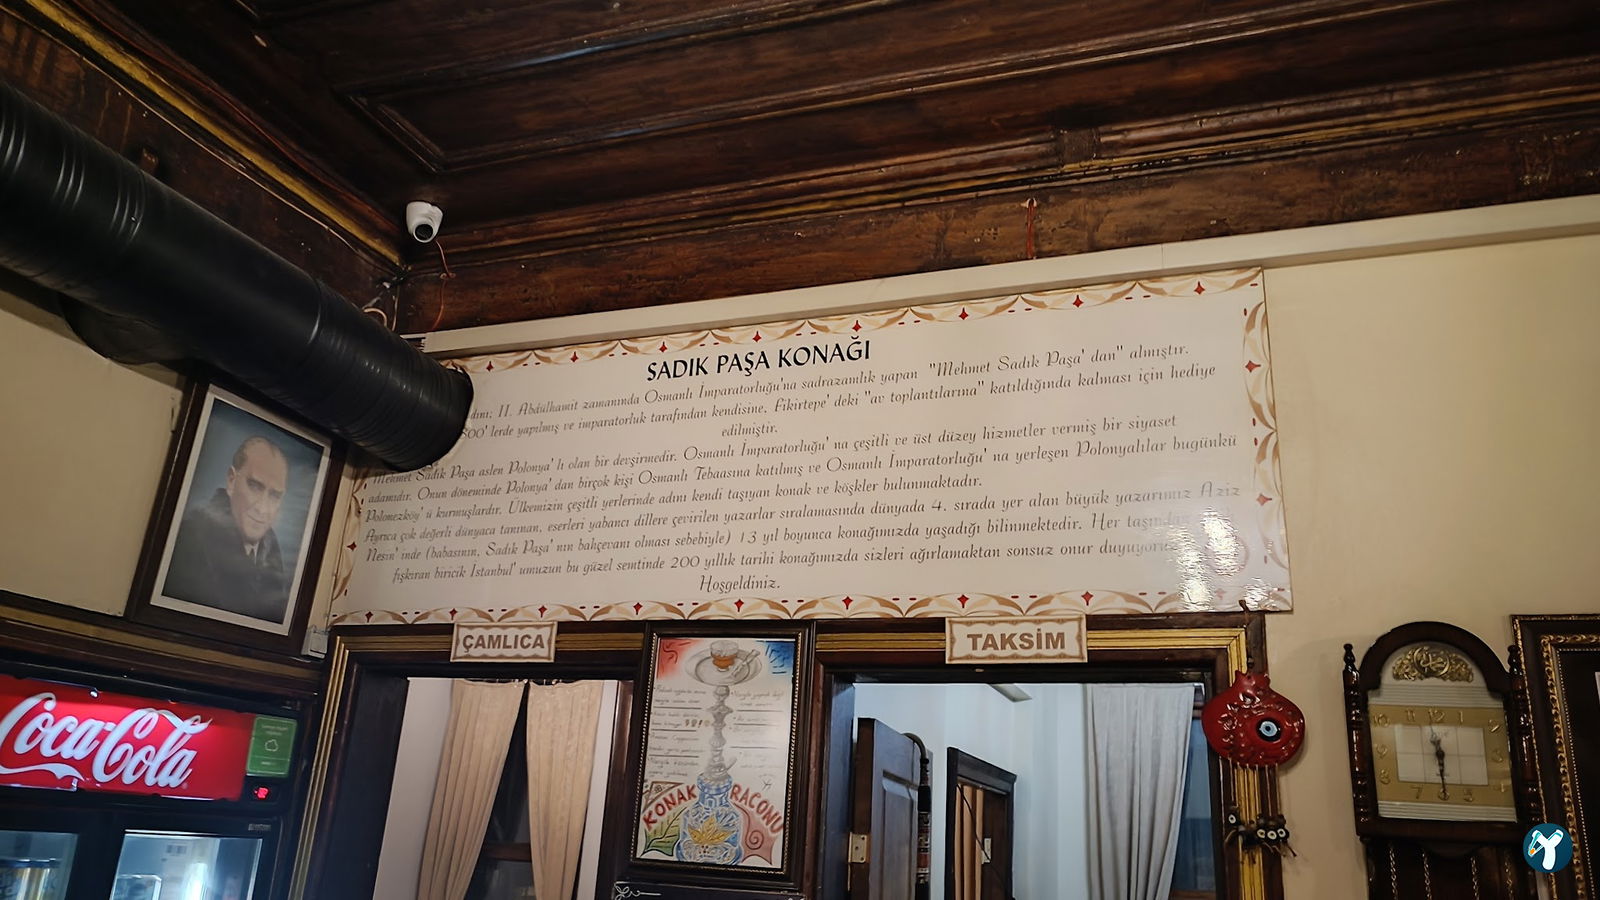 SADIK PAŞA KONAĞI
II. Abdülhamit zamanında Osmanlı İmparatorluğu'na sadrazamlık yapan "Mehmet Sadık Paşa' dan" almıştır.
800' lerde yapılmış ve imparatorluk tarafından kendisine, Fikirtepe' deki "av toplantılarına" katıldığında kalması için hediye
edilmiştir.
Mehmet Sadık Paşa aslen Polonya' lı olan bir devşirmedir. Osmanlı İmparatorluğu' na çeşitli ve üst düzey hizmetler vermiş bir siyaset
adamıdır. Onun döneminde Polonya' dan birçok kişi Osmanlı Tebaasına katılmış ve Osmanlı İmparatorluğu' na yerleşen Polonyalılar bugünkü
Polonezköy' ü kurmuşlardır. Ülkemizin çeşitli yerlerinde adını kendi taşıyan konak ve köşkler bulunmaktadır.
Ayrıca çok değerli dünyaca tanınan, eserleri yabancı dillere çevirilen yazarlar sıralamasında dünyada 4. sırada yer alan büyük yazarımız Aziz
Nesin' inde (babasının, Sadık Paşa' nın bahçevanı olması sebebiyle) 13 yıl boyunca konağımızda yaşadığı bilinmektedir. Her taşından
fışkıran biricik İstanbul' umuzun bu güzel semtinde 200 yıllık tarihi konağımızda sizleri ağırlamaktan sonsuz onur
Hoşgeldiniz.
ÇAMLICA
TAKSİM
Coca-Cola
KONAK RACONU
10 11 12 1